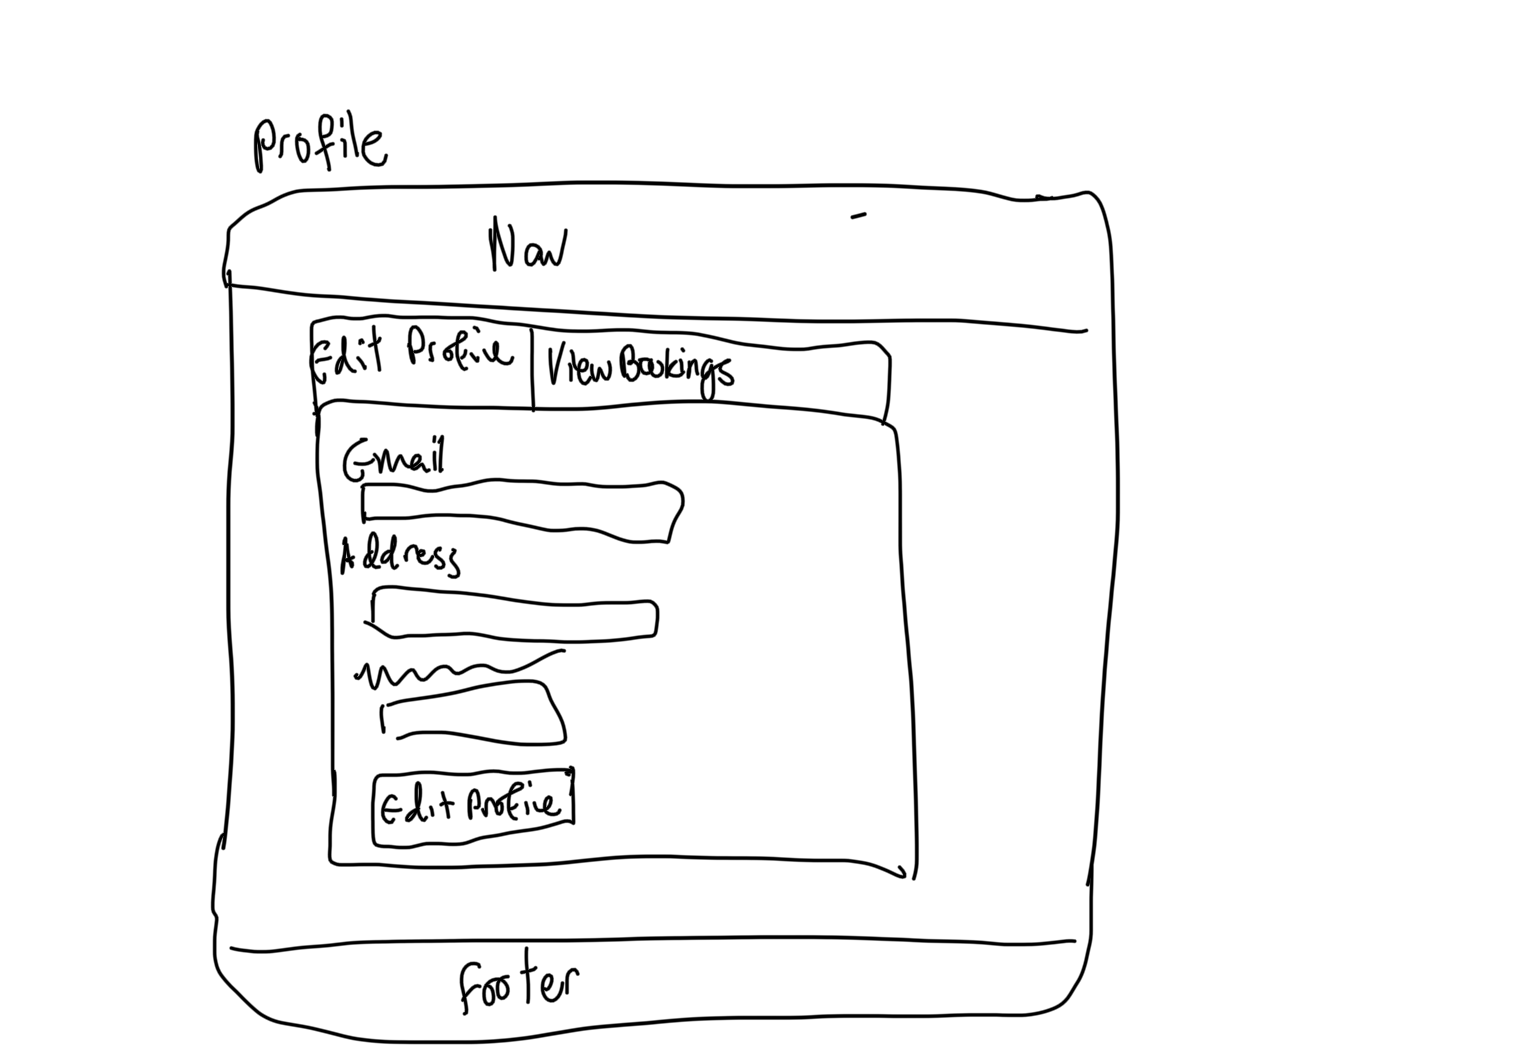 Profile
Nav
Edit Profile View Bookings
Email
Address
Edit Profile
Footer